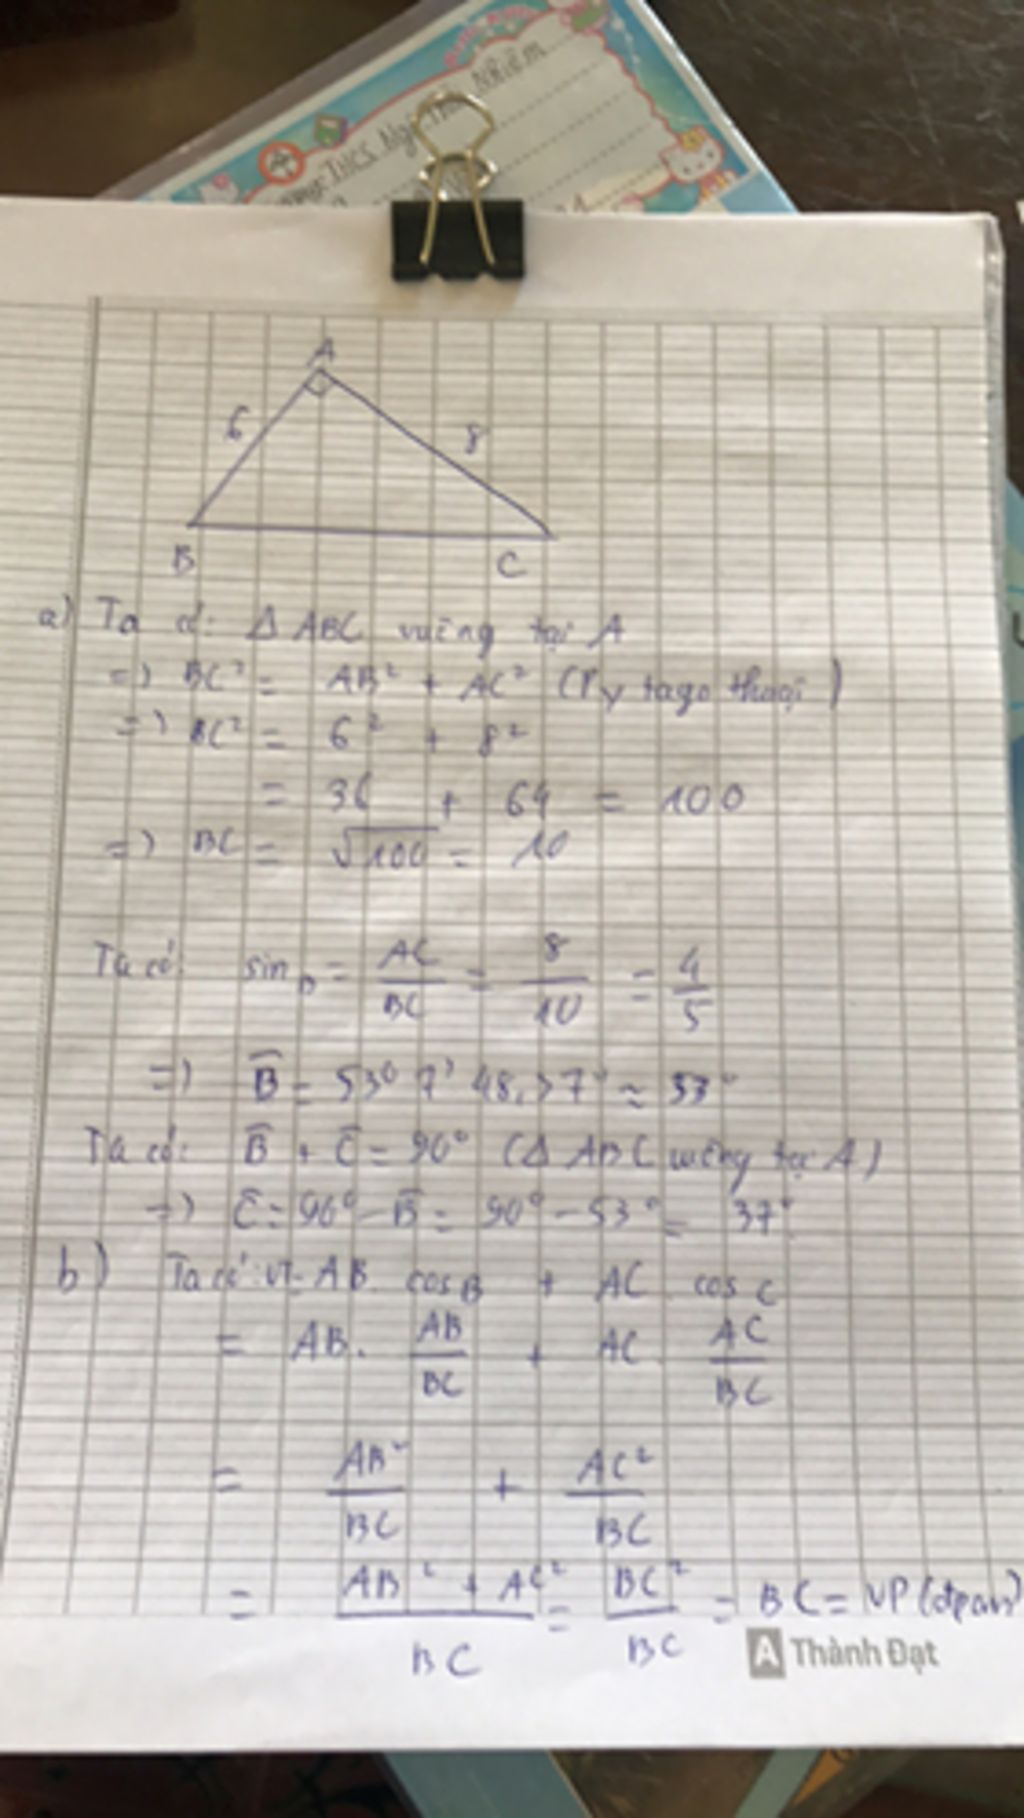 Trường THCS Ngô Thì Nhiệm
A
6
8
B
C
a) Ta có: Δ ABC vuông tại A
=) BC² = AB² + AC² (Py tago thuận)
=) BC² = 6² + 8²
= 36 + 64 = 100
=) BC = √100 = 10
Ta có: sin B = AC/BC = 8/10 = 4/5
=) B̂ = 53° 7' 48,37" ≈ 53°
Ta có: B̂ + Ĉ = 90° (Δ ABC vuông tại A)
=) Ĉ = 90° - B̂ = 90° - 53° = 37°
b) Ta có: VT = AB cos B + AC cos C
= AB. AB/BC + AC. AC/BC
= AB²/BC + AC²/BC
= (AB² + AC²)/BC = BC²/BC = BC = VP (đpcm)
A Thành Đạt